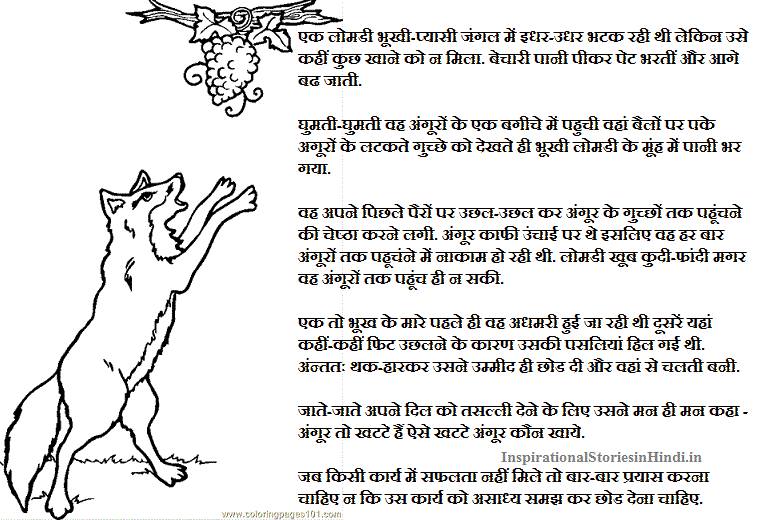 एक लोमडी भूखी-प्यासी जंगल में इधर-उधर भटक रही थी लेकिन उसे
कहीं कुछ खाने को न मिला. बेचारी पानी पीकर पेट भरतीं और आगे
बढ जाती.
घुमती-घुमती वह अंगूरों के एक बगीचे में पहुची वहां बैलों पर पके
अगूरों के लटकते गुच्छे को देखते ही भूखी लोमडी के मूंह में पानी भर
गया.
वह अपने पिछले पैरों पर उछल-उछल कर अंगूर के गुच्छों तक पहूंचने
की चेष्ठा करने लगी. अंगूर काफी उंचाई पर थे इसलिए वह हर बार
अंगूरों तक पहूचंने में नाकाम हो रही थी. लोमडी खूब कुदी-फांदी मगर
वह अंगूरों तक पहूंच ही न सकी.
एक तो भूख के मारे पहले ही वह अधमरी हुई जा रही थी दूसरें यहां
कहीं-कहीं फिट उछलने के कारण उसकी पसलियां हिल गई थी.
अंन्ततः थक-हारकर उसने उम्मीद ही छोड दी और वहां से चलती बनी.
जाते-जाते अपने दिल को तसल्ली देने के लिए उसने मन ही मन कहा -
अंगूर तो खटटे हैं ऐसे खटटे अंगूर कौन खाये.
InspirationalStoriesinHindi.in
जब किसी कार्य में सफलता नहीं मिले तो बार-बार प्रयास करना
चाहिए न कि उस कार्य को असाध्य समझ कर छोड देना चाहिए.
www.coloringpages101.com